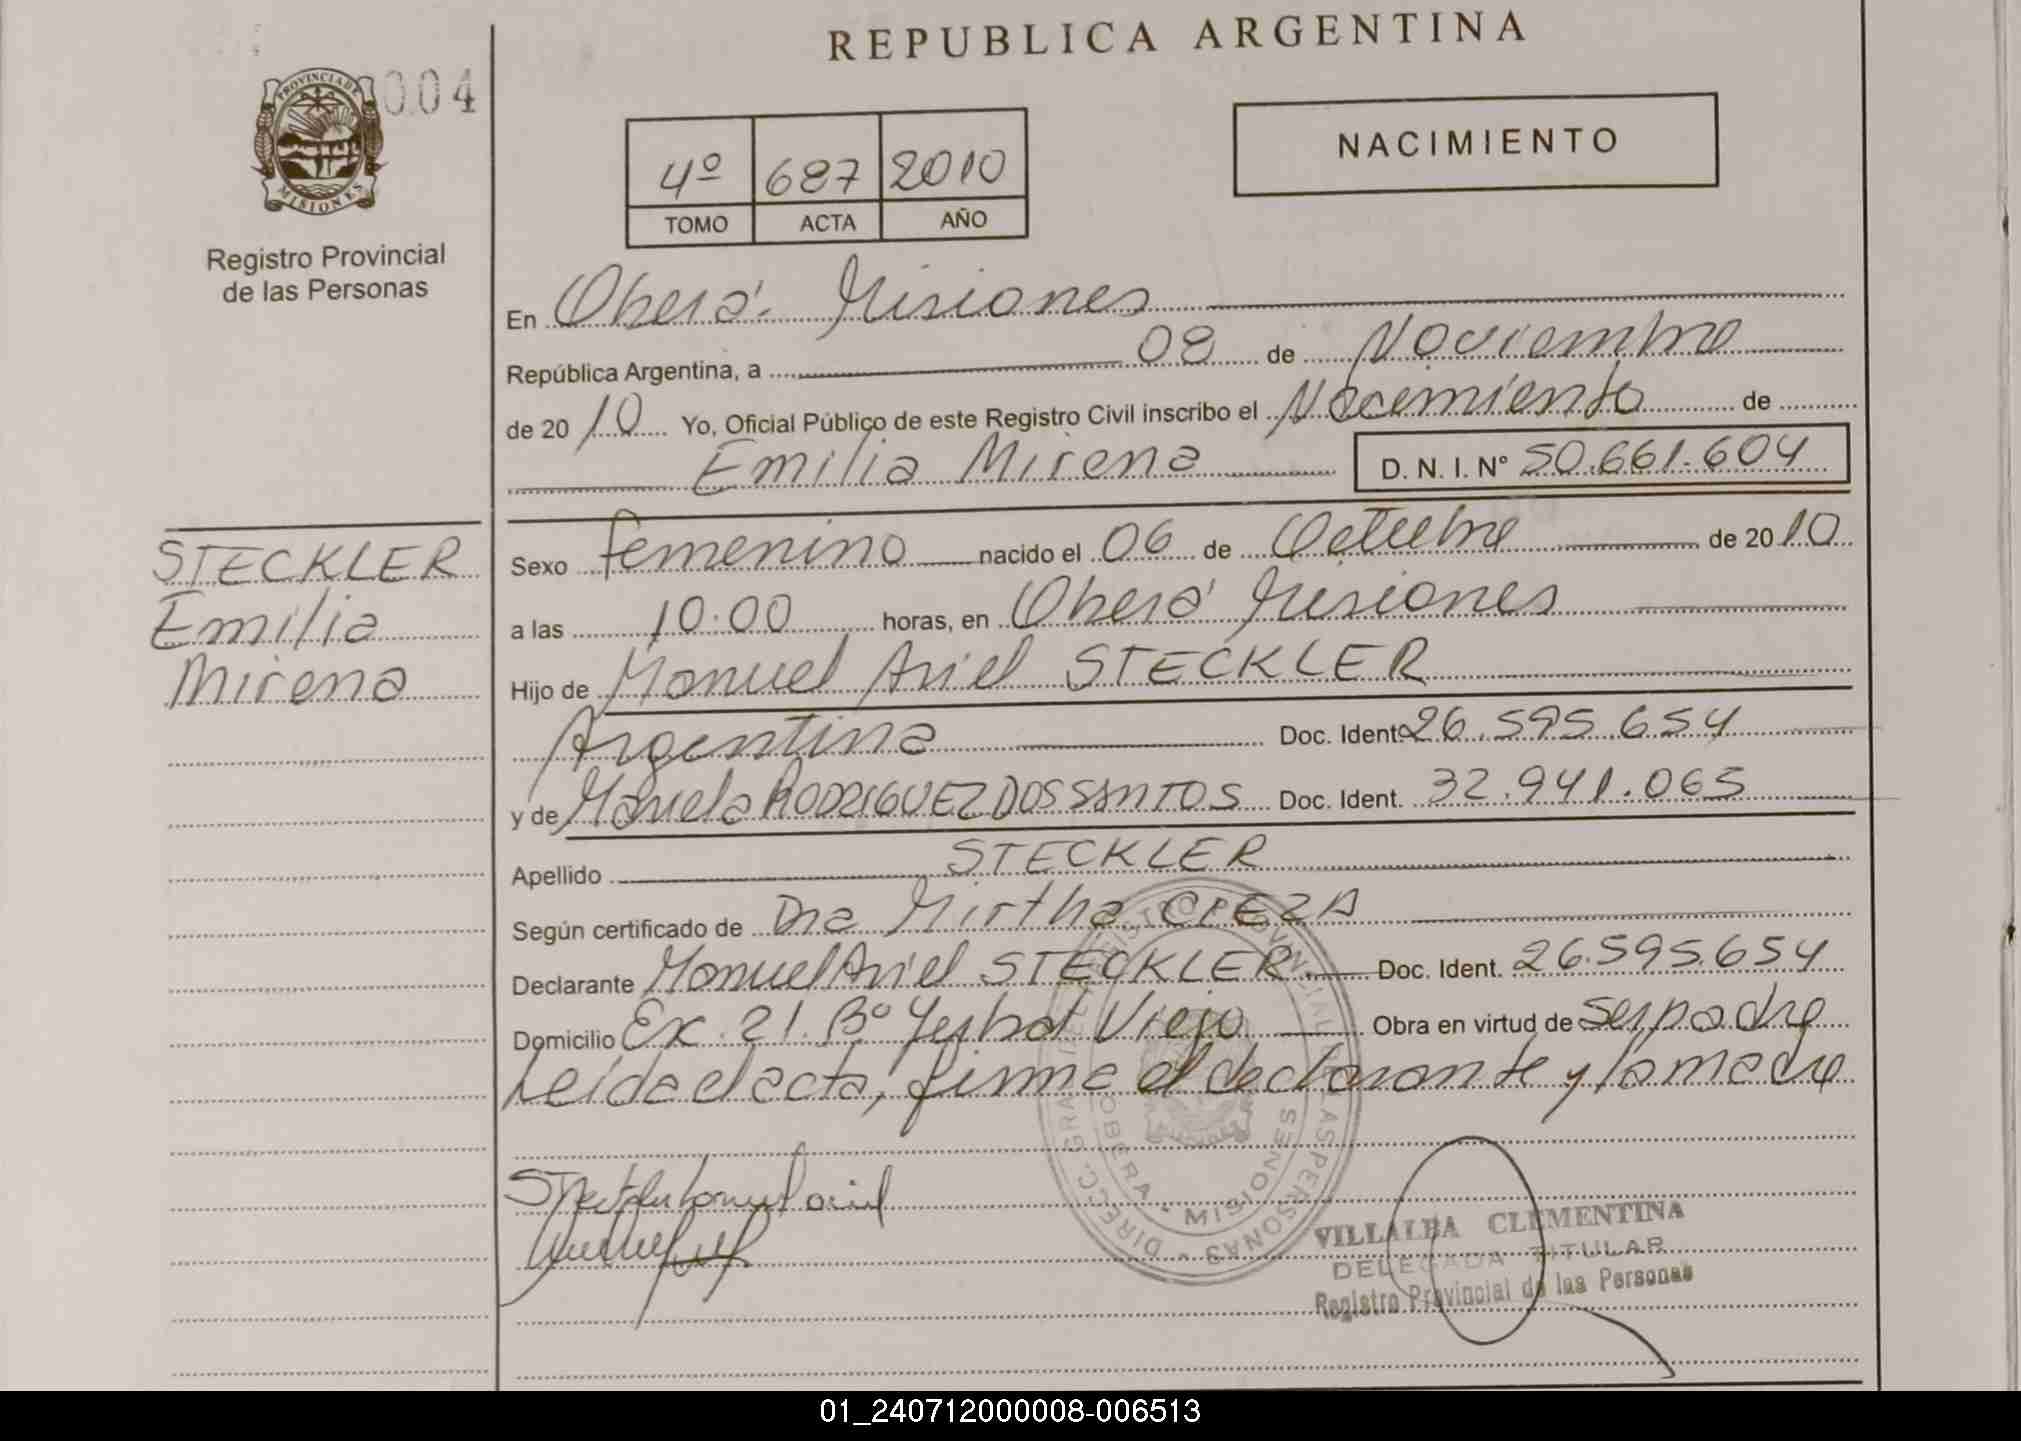 REPUBLICA ARGENTINA
004
PROVINCIA DE
MISIONES
Registro Provincial
de las Personas
4º 687 2010
TOMO ACTA AÑO
NACIMIENTO
En Oberá. Misiones
República Argentina, a 08 de Noviembre
de 2010 Yo, Oficial Público de este Registro Civil inscribo el Nacimiento de
Emilia Mirena D. N. I. Nº 50.661.604
STECKLER
Emilia
Mirena
Sexo femenino nacido el 06 de Octubre de 2010
a las 10.00 horas, en Oberá Misiones
Hijo de Manuel Ariel STECKLER
Argentina Doc. Ident. 26.595.654
y de Mariela RODRIGUEZ DOS SANTOS Doc. Ident. 32.941.065
Apellido STECKLER
Según certificado de Dra Mirtha CIEZA
Declarante Manuel Ariel STECKLER. Doc. Ident. 26.595.654
Domicilio Ex. 21. Bº Yerbal Viejo Obra en virtud de ser padre
Leida el acta, firma el declarante y la madre
DIRECC. GRAL. DEL REGISTRO PROVINCIAL DE LAS PERSONAS
OBERA - MISIONES
VILLALBA CLEMENTINA
DELEGADA TITULAR
Registro Provincial de las Personas
01_240712000008-006513